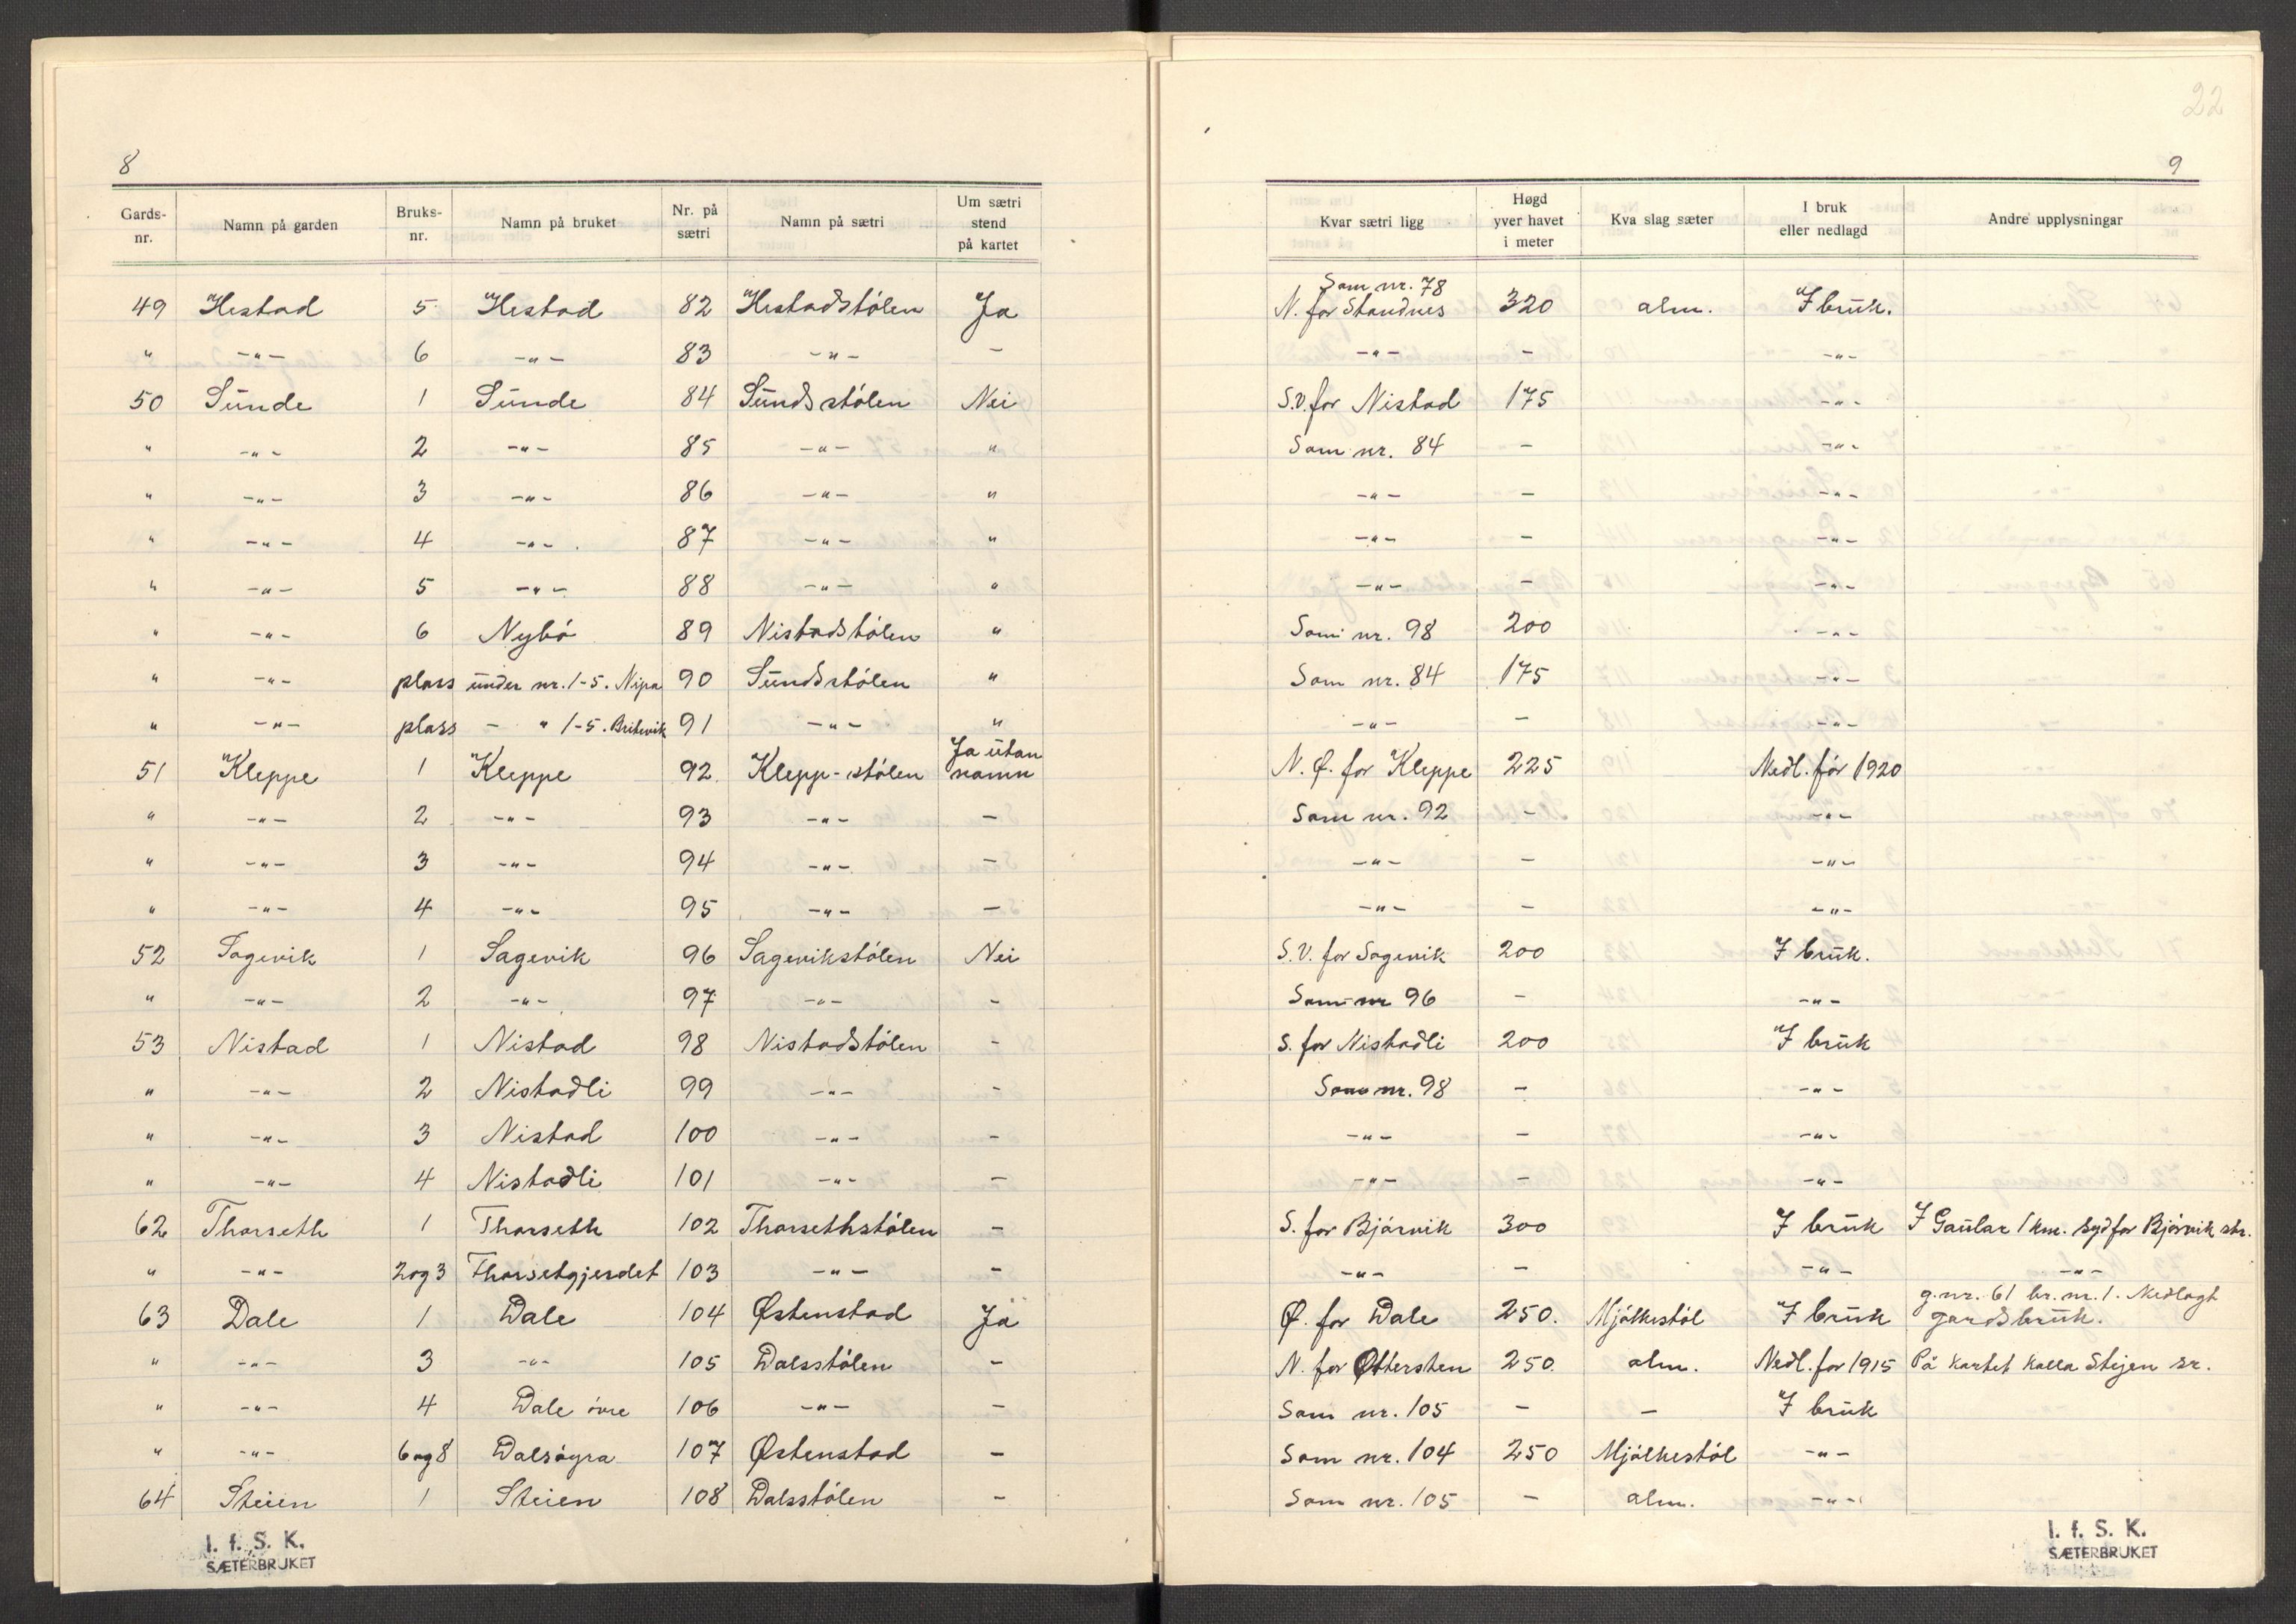 8
Gards-nr. | Namn på garden | Bruks-nr. | Namn på bruket | Nr. på sætri | Namn på sætri | Um sætri stend på kartet
49 Hestad 5 Hestad 82 Hestadstølen Ja
" -"- 6 -"- 83 -"- -
50 Sunde 1 Sunde 84 Sundsstølen Nei
" -"- 2 -"- 85 -"- "
" -"- 3 -"- 86 -"- "
" -"- 4 -"- 87 -"- "
" -"- 5 -"- 88 -"- "
" -"- 6 Nybø 89 Nistadstølen "
" -"- plass under nr. 1-5. Nipa 90 Sundsstølen "
" -"- plass - " 1-5. Britevik 91 -"- "
51 Kleppe 1 Kleppe 92 Klepp-stølen Ja utan namn
" -"- 2 -"- 93 -"- -
" -"- 3 -"- 94 -"- -
" -"- 4 -"- 95 -"- -
52 Sagevik 1 Sagevik 96 Sagevikstølen Nei
" -"- 2 -"- 97 -"- -
53 Nistad 1 Nistad 98 Nistadstølen -
" -"- 2 Nistadli 99 -"- -
" -"- 3 Nistad 100 -"- -
" -"- 4 Nistadli 101 -"- -
62 Thorseth 1 Thorseth 102 Thorsethstølen -
" -"- 2og3 Thorsetgjerdet 103 -"- -
63 Dale 1 Dale 104 Østenstad Ja
" -"- 3 -"- 105 Dalsstølen -
" -"- 4 Dale øvre 106 -"- -
" -"- 6og8 Dalsøyra 107 Østenstad -
64 Steien 1 Steien 108 Dalsstølen -
I. f. S. K.
SÆTERBRUKET
22
9
Kvar sætri ligg | Høgd yver havet i meter | Kva slag sæter | I bruk eller nedlagd | Andre upplysningar
Som nr. 78
N. for Standnes 320 alm. I bruk.
-"- - -"-
S.V. for Nistad 175 -"-
Som nr. 84 - -"-
-"- - -"-
-"- - -"-
-"- - -"-
Som nr. 98 200 -"-
Som nr. 84 175 -"-
-"- - -"-
N. Ø. for Kleppe 225 Nedl. før 1920
Som nr. 92 - -"-
-"- - -"-
-"- - -"-
S. V. for Sagevik 200 I bruk.
Som nr 96 - -"-
S. for Nistadli 200 I bruk
Som nr. 98 - -"-
-"- - -"-
-"- - -"-
S. for Bjørvik 300 I bruk I Gaular 1 km. syd for Bjørvik str.
-"- - -"- -"-
Ø. for Dale 250. Mjølkestøl I bruk g.nr. 61 br.nr. 1. Nedlagt gardsbruk.
N. for Ottersten 250. alm. Nedl. for 1915 På kartet kalla Stejen sr.
Som nr. 105 - - I bruk
Som nr. 104 250 Mjølkestøl -"-
Som nr. 105 - alm. -"-
I. f. S. K.
SÆTERBRUKET